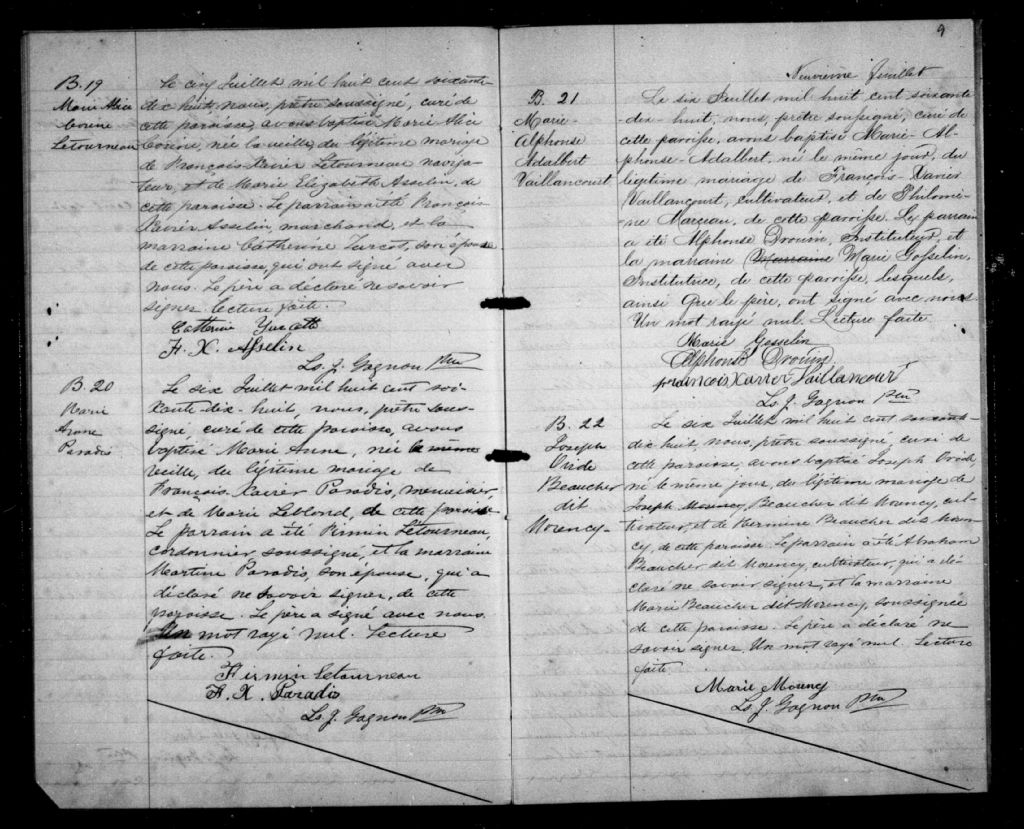 B. 19
Marie Alice
Corine
Letourneau
Le cinq Juillet mil huit cent soixante-
dix huit, nous, prêtre soussigné, curé de
cette paroisse, avons baptisé Marie Alice
Corine, née la veille, du légitime mariage
de François-Xavier Letourneau naviga-
teur, et de Marie Elizabeth Asselin, de
cette paroisse. Le parrain a été François
Xavier Asselin, marchand, et la
marraine Catherine Turcot, son épouse
de cette paroisse, qui ont signé avec
nous. Le père a déclaré ne savoir
signer. Lecture faite.
Catherine
F. X. Asselin
Ls. J. Gagnon Ptre
B. 20
Marie
Anne
Paradis
Le six Juillet mil huit cent soi-
xante-dix-huit, nous, prêtre sous-
signé curé de cette paroisse, avons
baptisé Marie Anne, née le même
veille, du légitime mariage de
François-Xavier Paradis, menuisier,
et de Marie Leblond, de cette paroisse.
Le parrain a été Firmin Letourneau,
cordonnier soussigné, et la marraine
Martine Paradis, son épouse, qui a
déclaré ne savoir signer, de cette
paroisse. Le père a signé avec nous.
Un mot rayé nul. Lecture
faite.
Firmin Letourneau
F. X. Paradis
Ls. J. Gagnon Ptre
9
Neuvième feuillet
B. 21
Marie-
Alphonse
Adalbert
Vaillancourt
Le six Juillet mil huit cent soixante
dix-huit, nous, prêtre soussigné, curé de
cette paroisse, avons baptisé Marie-Al-
phonse-Adalbert, né le même jour, du
légitime mariage de François-Xavier
Vaillancourt, cultivateur, et de Philomè-
ne Marceau, de cette paroisse. Le parrain
a été Alphonse Drouin, Instituteur, et
la marraine Marraine Marie Gosselin,
Institutrice, de cette paroisse, lesquels,
ainsi que le père, ont signé avec nous.
Un mot rayé nul. Lecture faite.
Marie Gosselin
Alphonse Drouin
François Xavier Vaillancourt
Ls. J. Gagnon Ptre
B. 22
Joseph
Ovide
Beaucher
dit
Morency-
Le six Juillet mil huit cent soixante-
dix-huit, nous, prêtre soussigné, curé de
cette paroisse, avons baptisé Joseph Ovide,
né le même jour, du légitime mariage de
Joseph Morency, Beaucher dit Morency, cul-
tivateur, et de Hermine Beaucher dit Moren-
cy, de cette paroisse. Le parrain a été Abraham
Beaucher dit Morency, cultivateur, qui a dé-
claré ne savoir signer, et la marraine
Marie Beaucher dit Morency, soussignée
de cette paroisse. Le père a déclaré ne
savoir signer. Un mot rayé nul. Lecture
faite.
Marie Morency
Ls. J. Gagnon Ptre